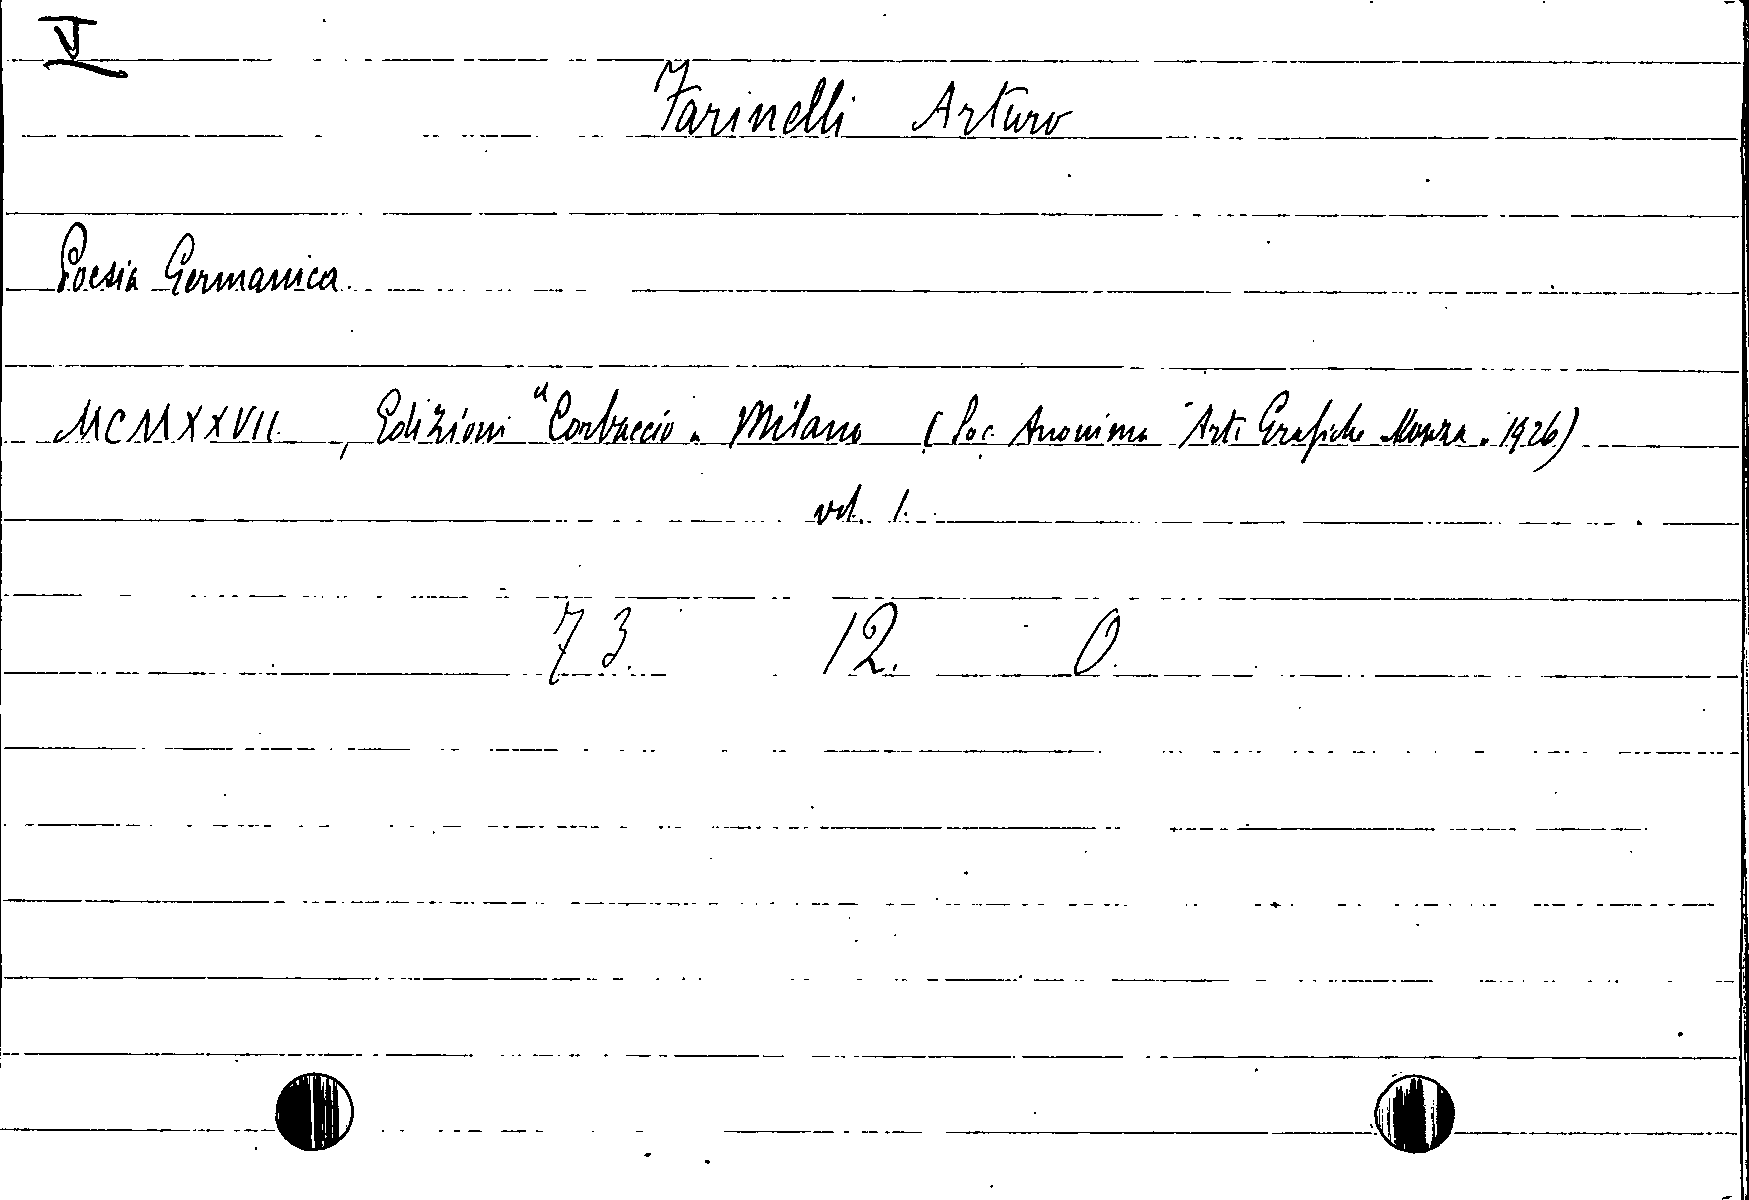 V
Farinelli Arturo
Poesia Germanica.
MCMXXVII, Edizioni "Corbaccio" Milano (Soc. Anonima "Arti Grafiche Monza. 1926)
vol. 1.
73. 12. 0.